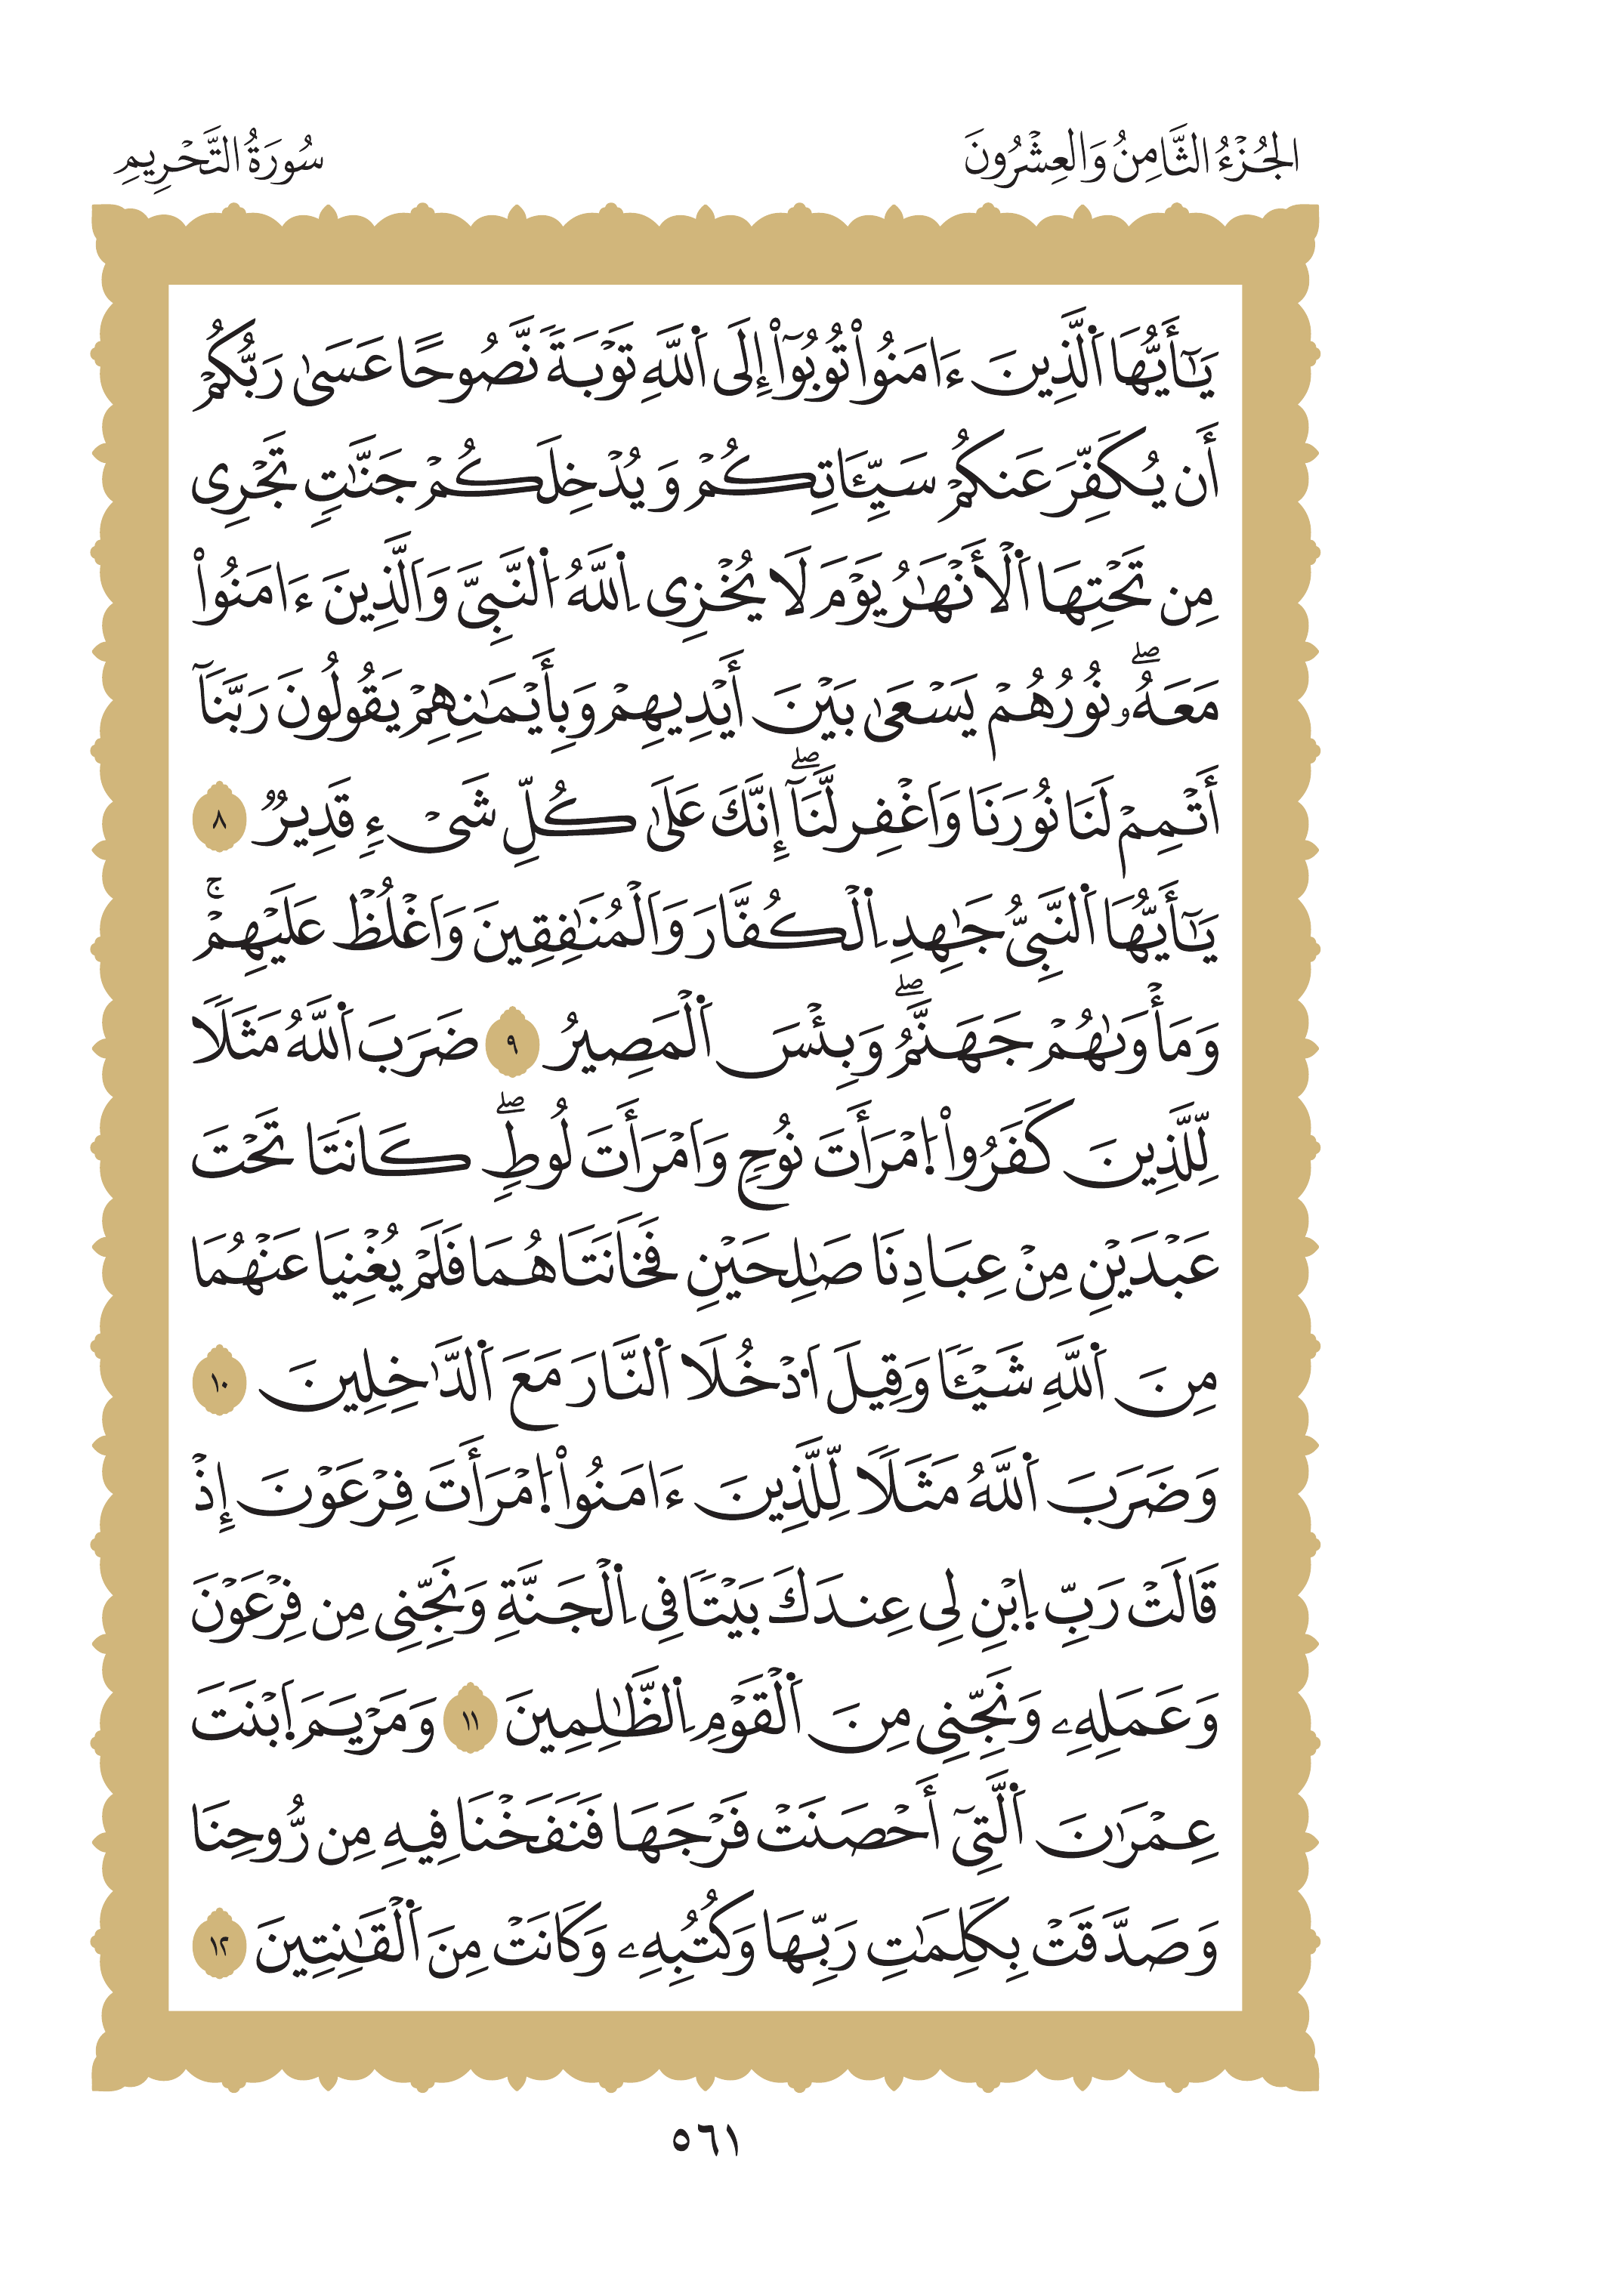 الجُزْءُ الثَّامِنُ وَالعِشْرُونَ
سُورَةُ التَّحْرِيمِ
يَٰٓأَيُّهَا اَ۬لَّذِينَ ءَامَنُواْ تُوبُوٓاْ إِلَى اَ۬للَّهِ تَوْبَةٗ نَّصُوحًا عَسَىٰ رَبُّكُمْ
أَن يُكَفِّرَ عَنكُمْ سَيِّـَٔاتِكُمْ وَيُدْخِلَكُمْ جَنَّٰتٖ تَجْرِى
مِن تَحْتِهَا اَ۬لْأَنْهَٰرُ يَوْمَ لَا يُخْزِى اِ۬للَّهُ اُ۬لنَّبِيَّ وَاَلَّذِينَ ءَامَنُواْ
مَعَهُۥۖ نُورُهُمْ يَسْعَىٰ بَيْنَ أَيْدِيهِمْ وَبِأَيْمَٰنِهِمْ يَقُولُونَ رَبَّنَآ
أَتْمِمْ لَنَا نُورَنَا وَاَغْفِر لَّنَآۖ إِنَّكَ عَلَىٰ كُلِّ شَىْءٖ قَدِيرٞ ٨
يَٰٓأَيُّهَا اَ۬لنَّبِيُّ جَٰهِدِ اِ۬لْكُفَّارَ وَاَلْمُنَٰفِقِينَ وَاَغْلُظْ عَلَيْهِمْۚ
وَمَأْوَىٰهُمْ جَهَنَّمُۖ وَبِئْسَ اَ۬لْمَصِيرُ ٩ ضَرَبَ اَ۬للَّهُ مَثَلٗا
لِّلَّذِينَ كَفَرُواْ اُ۪مْرَأَتَ نُوحٖ وَاَمْرَأَتَ لُوطٖۖ كَانَتَا تَحْتَ
عَبْدَيْنِ مِنْ عِبَادِنَا صَٰلِحَيْنِ فَخَانَتَاهُمَا فَلَمْ يُغْنِيَا عَنْهُمَا
مِنَ اَ۬للَّهِ شَيْـٔٗا وَقِيلَ اَ۟دْخُلَا اَ۬لنَّارَ مَعَ اَ۬لدَّٰخِلِينَ ١٠
وَضَرَبَ اَ۬للَّهُ مَثَلٗا لِّلَّذِينَ ءَامَنُواْ اُ۪مْرَأَتَ فِرْعَوْنَ إِذْ
قَالَتْ رَبِّ اِ۪بْنِ لِى عِندَكَ بَيْتٗا فِى اِ۬لْجَنَّةِ وَنَجِّنِى مِن فِرْعَوْنَ
وَعَمَلِهِۦ وَنَجِّنِى مِنَ اَ۬لْقَوْمِ اِ۬لظَّٰلِمِينَ ١١ وَمَرْيَمَ اَ۪بْنَتَ
عِمْرَٰنَ اَ۬لَّتِىٓ أَحْصَنَتْ فَرْجَهَا فَنَفَخْنَا فِيهِ مِن رُّوحِنَا
وَصَدَّقَتْ بِكَلِمَٰتِ رَبِّهَا وَكُتُبِهِۦ وَكَانَتْ مِنَ اَ۬لْقَٰنِتِينَ ١٢
٥٦١